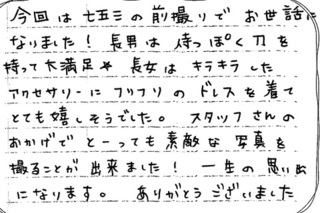 今回は七五三の前撮りでお世話に
なりました！長男は侍っぽく刀を
持って大満足★長女はキラキラした
アクセサリーにフリフリのドレスを着て
とても嬉しそうでした。スタッフさんの
おかげでとーっても素敵な写真を
撮ることが出来ました！一生の思い出
になります。ありがとうございました